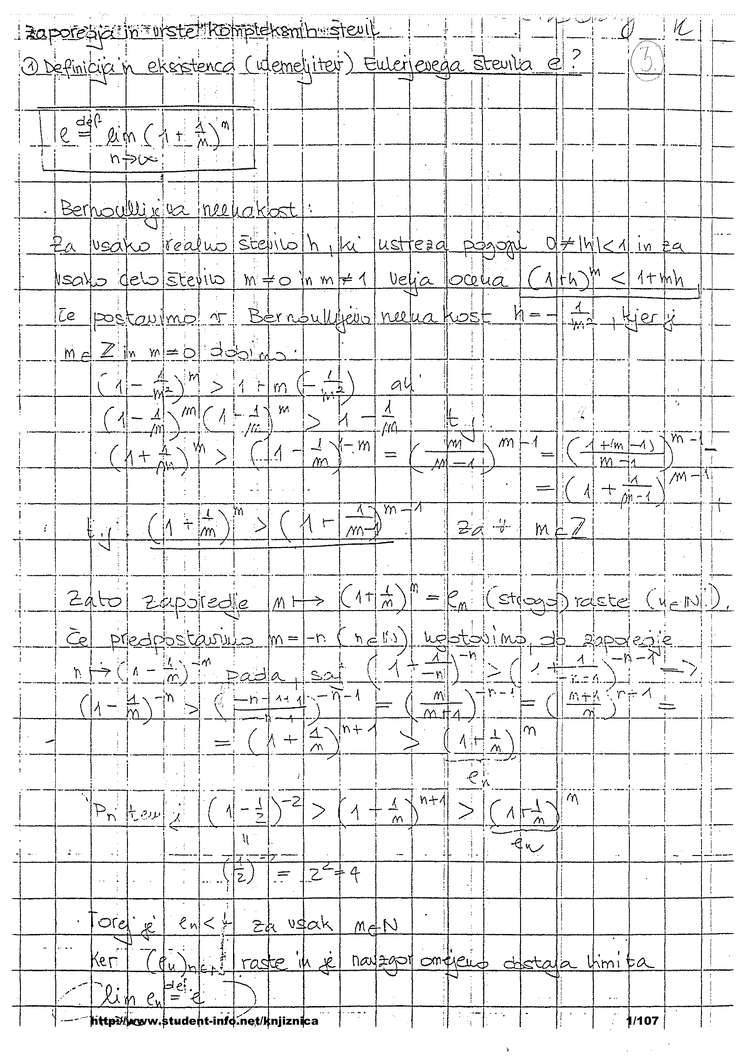 zaporedja in vrste kompleksnih števil
① Definicija in eksistenca (utemeljitev) Eulerjevega števila e?
3.
e def= lim n→∞ (1 + 1/n)^n
Bernoullijeva neenakost:
Za vsako realno število h, ki ustreza pogoju 0≠|h|<1 in za
vsako celo število m≠0 in m≠1 velja ocena (1+h)^m < 1+mh
Če postavimo v Bernoullijevo neenakost h = - 1/m², kjer je
m∈Z in m≠0 dobimo:
(1 - 1/m²)^m > 1 + m(-1/m²) ali
(1 - 1/m)^m (1 - 1/m)^m > 1 - 1/m t.j.
(1 + 1/m)^m > (1 - 1/m)^1-m = (m/m-1)^m-1 = (1+(m-1)/m-1)^m-1 =
= (1 + 1/m-1)^m-1
t.j. (1 + 1/m)^m > (1 + 1/m-1)^m-1 za ∀ m∈Z
Zato zaporedje m ↦ (1+1/m)^m = e_m (strogo) raste (n∈N).
Če predpostavimo m=-n (n∈N) ugotovimo, da zaporedje
n ↦ (1 - 1/n)^-n pada, saj (1 + 1/-n)^-n > (1 + 1/-n-1)^-n-1 =>
(1 - 1/n)^-n > (-n-1+1/-n-1)^-n-1 = (n/n+1)^-n-1 = (n+1/n)^n+1 =
= (1 + 1/n)^n+1 > (1 + 1/n)^n
e_n
Pri tem je (1 - 1/2)^-2 > (1 - 1/n)^n+1 > (1+1/n)^n
e_n
(1/2) = 2²=4
Torej je e_n < 4 za vsak n∈N
Ker (e_n)n∈N raste in je navzgor omejeno obstaja limita
lim e_n def.= e
http://www.student-info.net/knjiznica
1/107